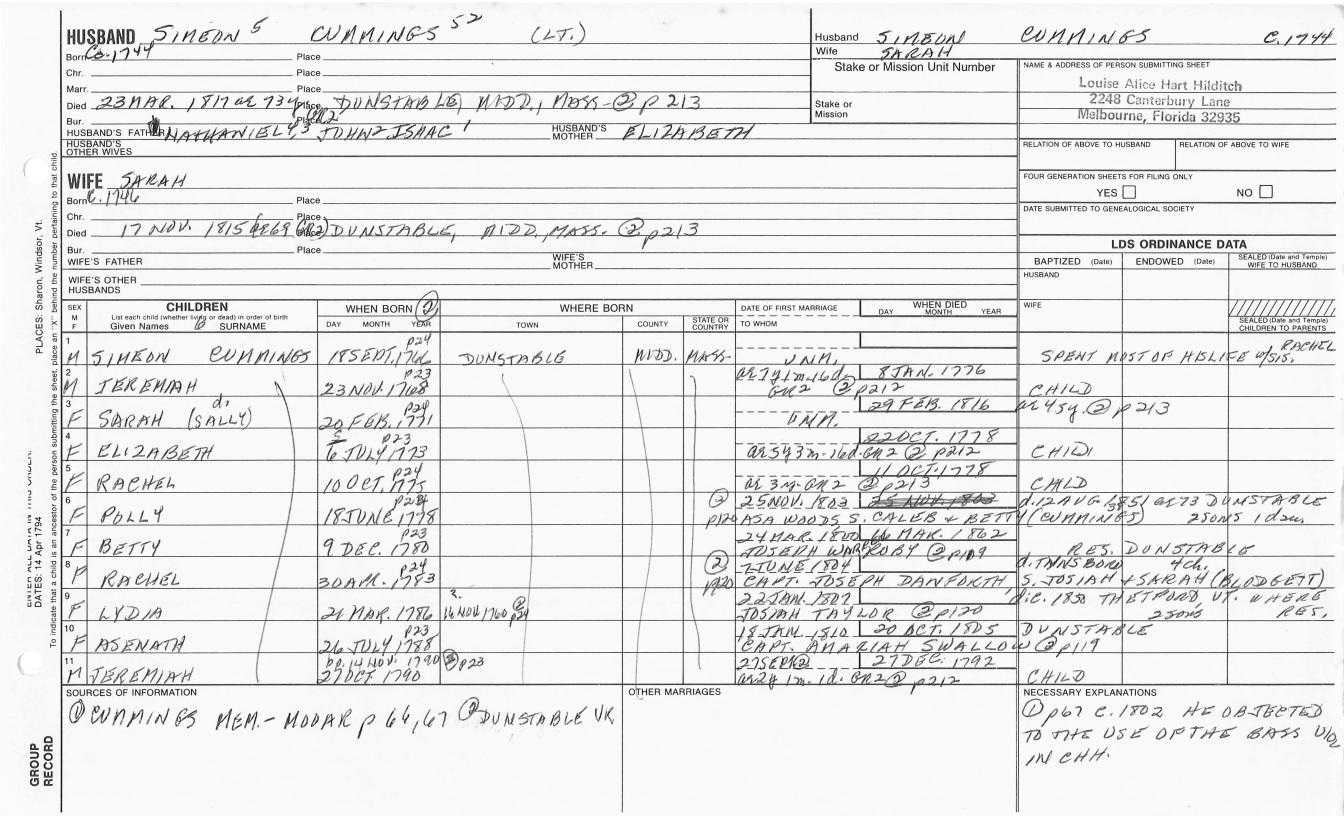 HUSBAND SIMEON 5 CUMMINGS 52 (LT.)
Born Ca. 1744 Place
Chr. Place
Marr. Place
Died 23 MAR. 1817 ae 73y GR2 Place DUNSTABLE, MIDD., MASS - ② p 213
Bur. Place
HUSBAND'S FATHER NATHANIEL 4,3 JOHN 2 ISAAC 1 HUSBAND'S MOTHER ELIZABETH
HUSBAND'S OTHER WIVES
WIFE SARAH
Born C. 1746 Place
Chr. Place
Died 17 NOV. 1815 ae 69 GR2 Place DUNSTABLE, MIDD., MASS. ② p 213
Bur. Place
WIFE'S FATHER WIFE'S MOTHER
WIFE'S OTHER HUSBANDS
Husband SIMEON CUMMINGS C. 1744
Wife SARAH
Stake or Mission Unit Number
Stake or Mission
NAME & ADDRESS OF PERSON SUBMITTING SHEET
Louise Alice Hart Hilditch
2248 Canterbury Lane
Melbourne, Florida 32935
RELATION OF ABOVE TO HUSBAND RELATION OF ABOVE TO WIFE
FOUR GENERATION SHEETS FOR FILING ONLY
YES NO
DATE SUBMITTED TO GENEALOGICAL SOCIETY
LDS ORDINANCE DATA
BAPTIZED (Date) ENDOWED (Date) SEALED (Date and Temple) WIFE TO HUSBAND
HUSBAND
WIFE
SEALED (Date and Temple) CHILDREN TO PARENTS
SEX M F CHILDREN WHEN BORN ② WHERE BORN DATE OF FIRST MARRIAGE WHEN DIED
List each child (whether living or dead) in order of birth
Given Names SURNAME DAY MONTH YEAR TOWN COUNTY STATE OR COUNTRY TO WHOM DAY MONTH YEAR
1 p24 RACHEL
M SIMEON CUMMINGS 18 SEPT. 1766 DUNSTABLE MIDD. MASS- UNM. SPENT MOST OF HIS LIFE w/SIS.
2 p23 ae 7y 1m 16d. 8 JAN. 1776
M JEREMIAH 23 NOV. 1768 GR2 ② p212 CHILD
3 d. p24 29 FEB. 1816 ae 45y. ② p 213
F SARAH (SALLY) 20 FEB. 1771 UNM.
4 p23 22 OCT. 1778
F ELIZABETH 6 JULY 1773 ae 5y 3m - 16d. GR2 ② p212 CHILD
5 p24 11 OCT. 1778
F RACHEL 10 OCT. 1775 ae 3m - GR2 ② p213 CHILD
6 ② 25 NOV. 1802 25 NOV. 1803 d. 12 AUG. 1851 ae 73 DUNSTABLE
F POLLY 18 JUNE 1778 p120 ASA WOODS S. CALEB & BETTY (CUMMINGS) 2 SONS 1 dau.
7 p23 24 MAR. 1800 16 MAR. 1862
F BETTY 9 DEC. 1780 JOSEPH ROBY ② p109 RES. DUNSTABLE
8 p24 ② 7 JUNE 1804 4 ch.
RACHEL 1783 p120 CAPT. JOSEPH DANFORTH S. JOSIAH & SARAH (BLODGETT)
9 22 JAN. 1807 C. 1850 THETFORD, VT. WHERE
F LYDIA 21 MAR. 1786 14 NOV 1760 ② p24 JOSIAH TAYLOR ② p120 2 sons RES.
10 p23 18 JAN. 1810 20 OCT. 1805 DUNSTABLE
F ASENATH 26 JULY 1788 CAPT. AMAZIAH SWALLOW ② p119
11 bp. 14 NOV. 1790 ② p23 27 DEC. 1792
M JEREMIAH 27 OCT 1790 ae 2y 1m - 1d. GR2 ② p212 CHILD
SOURCES OF INFORMATION
① CUMMINGS MEM. - MODAR p 66, 67 ② DUNSTABLE VR
OTHER MARRIAGES
NECESSARY EXPLANATIONS
① p67 C. 1802 HE OBJECTED
TO THE USE OF THE BASS VIOL
IN CHH.
PLACES: Sharon, Windsor, Vt.
DATES: 14 Apr 1794
To indicate that a child is an ancestor of the person submitting the sheet, place an "X" behind the number pertaining to that child.
GROUP RECORD